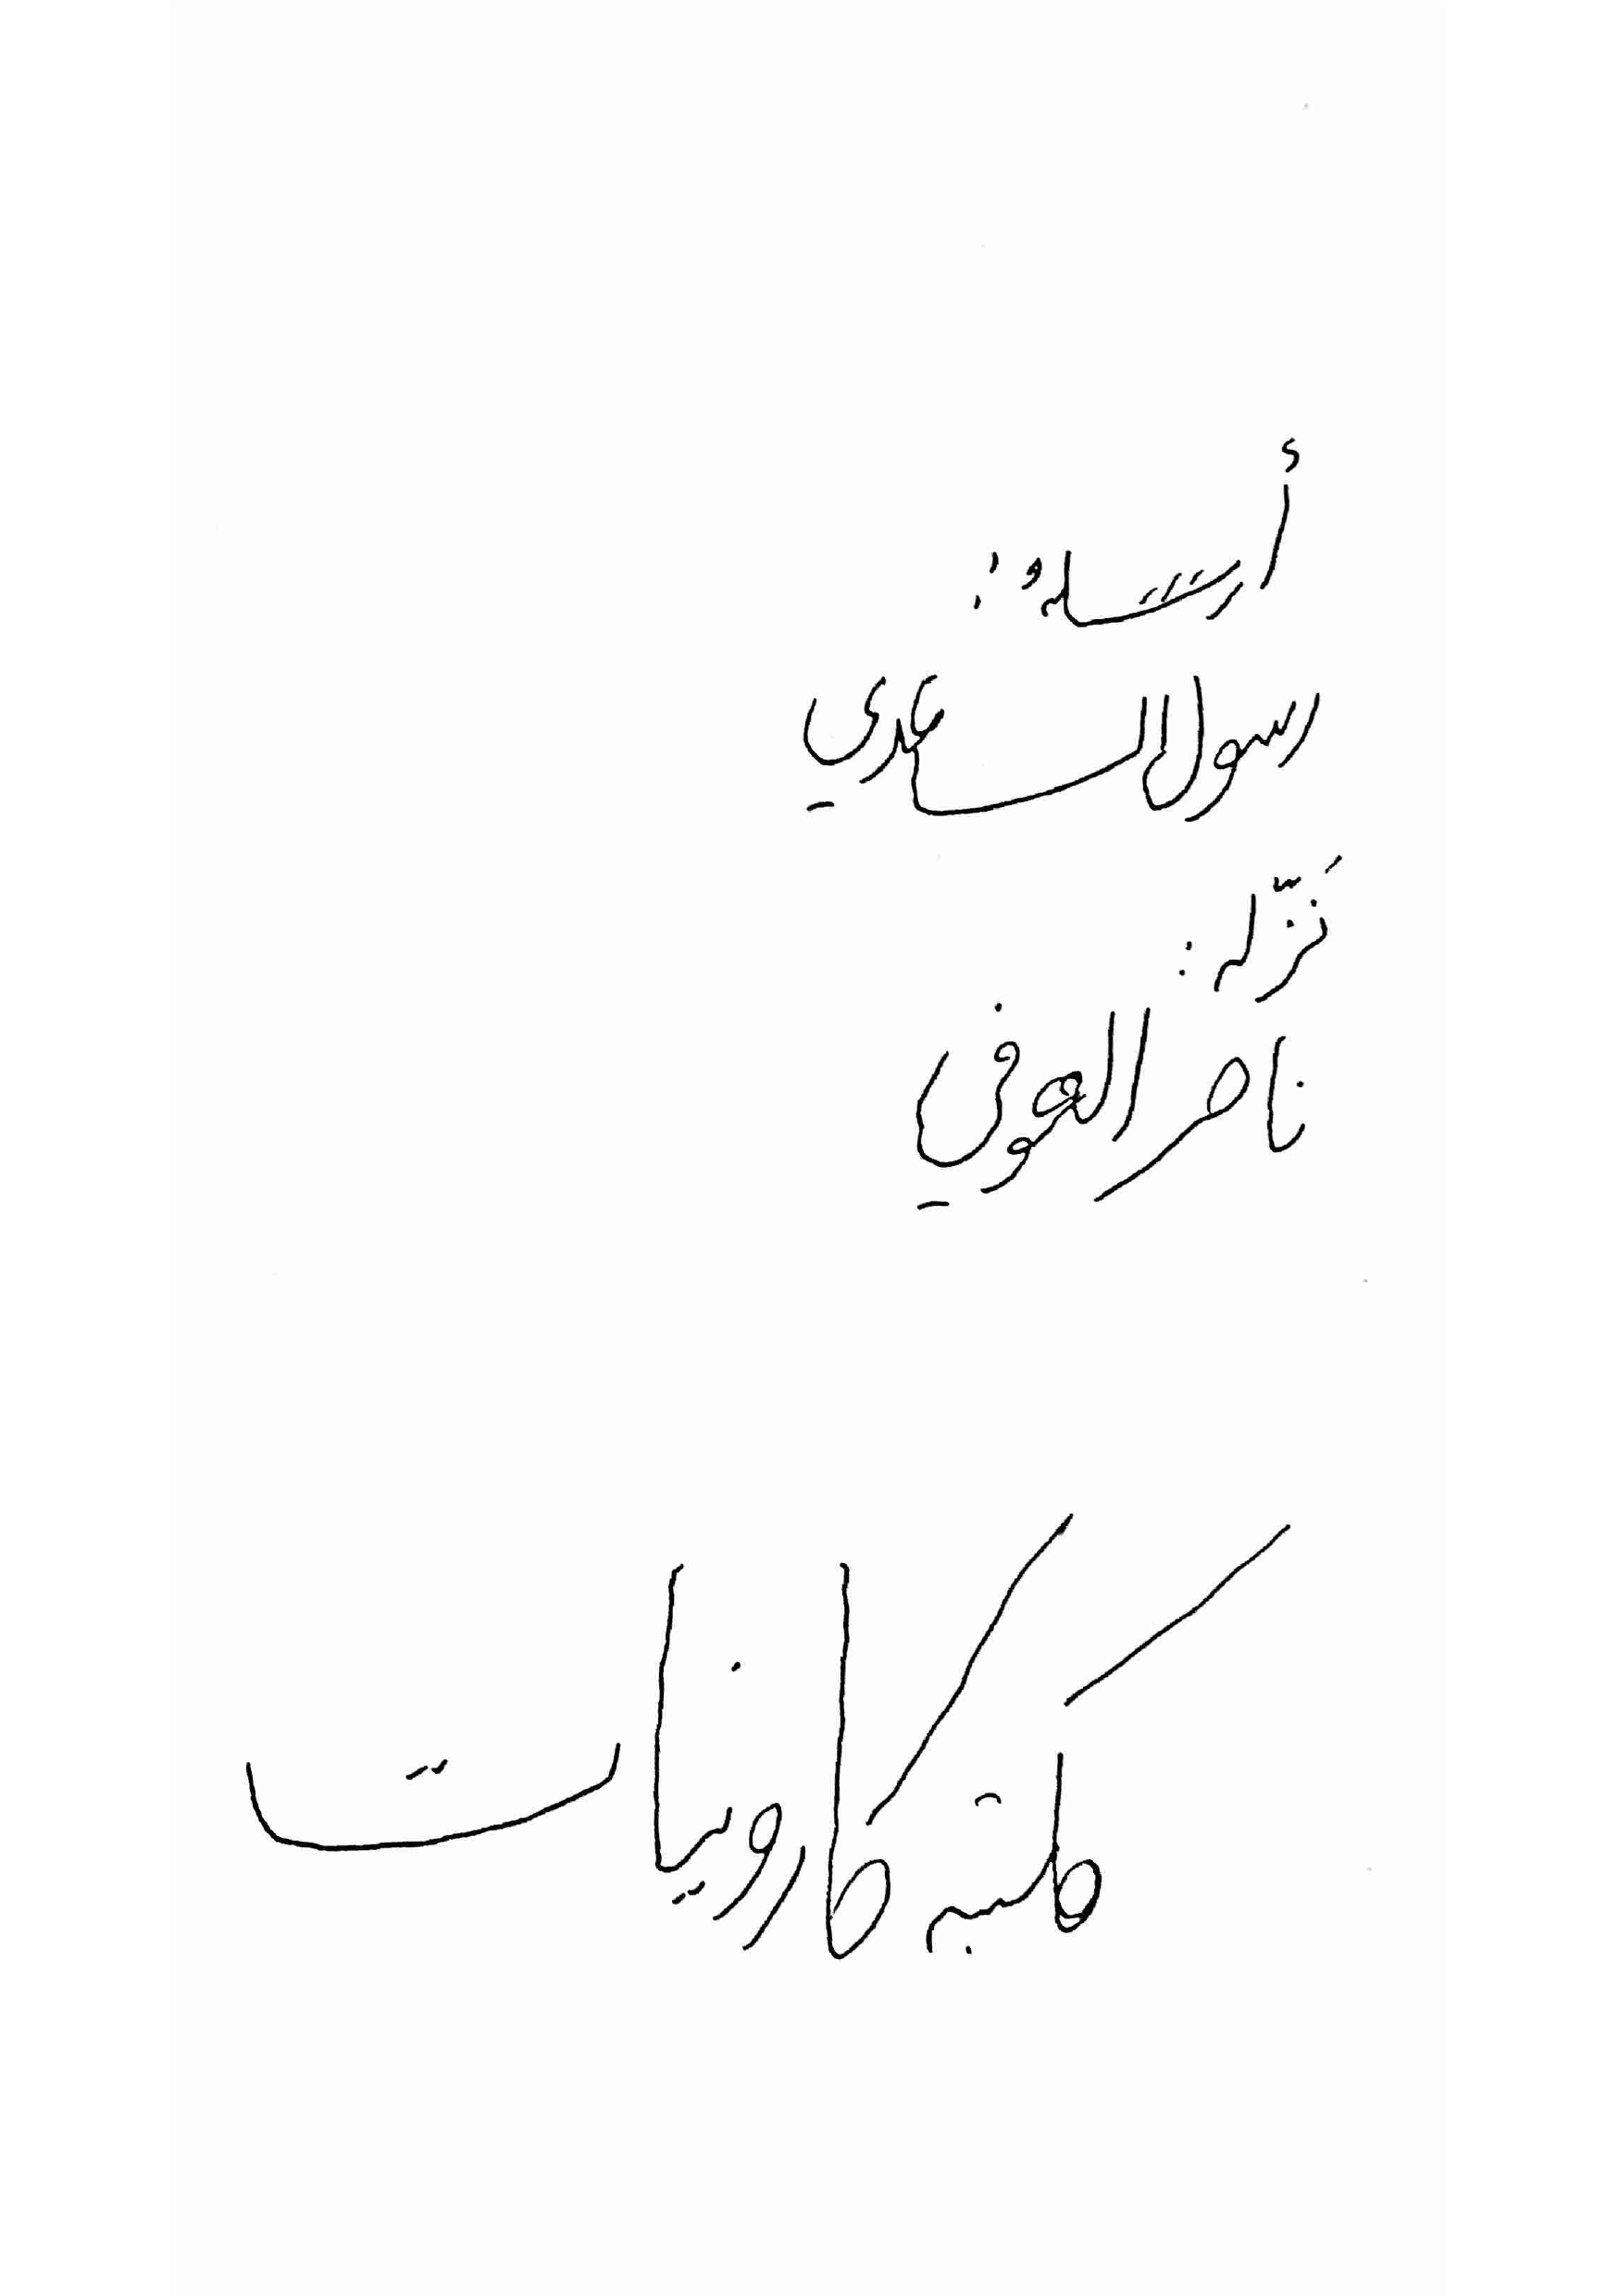 أرسلهُ :
رسول الساعدي
نَزّله :
ناصر العوفي
مكتبه كارونيات